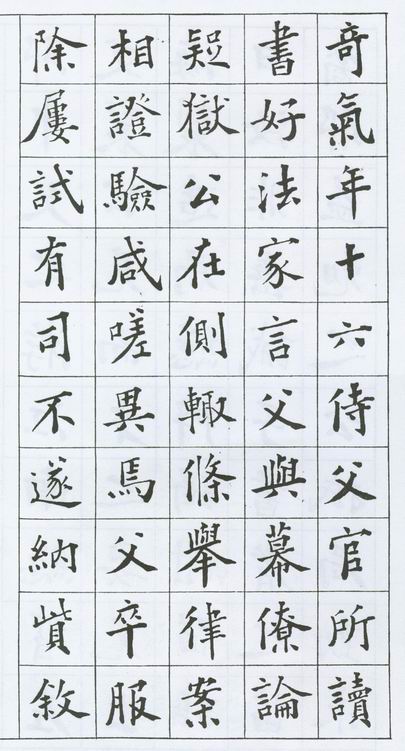 奇氣年十六侍父官所讀
書好法家言父與幕僚論
疑獄公在側輙條舉律案
相證驗咸嗟異焉父卒服
除屢試有司不遂納貲敘